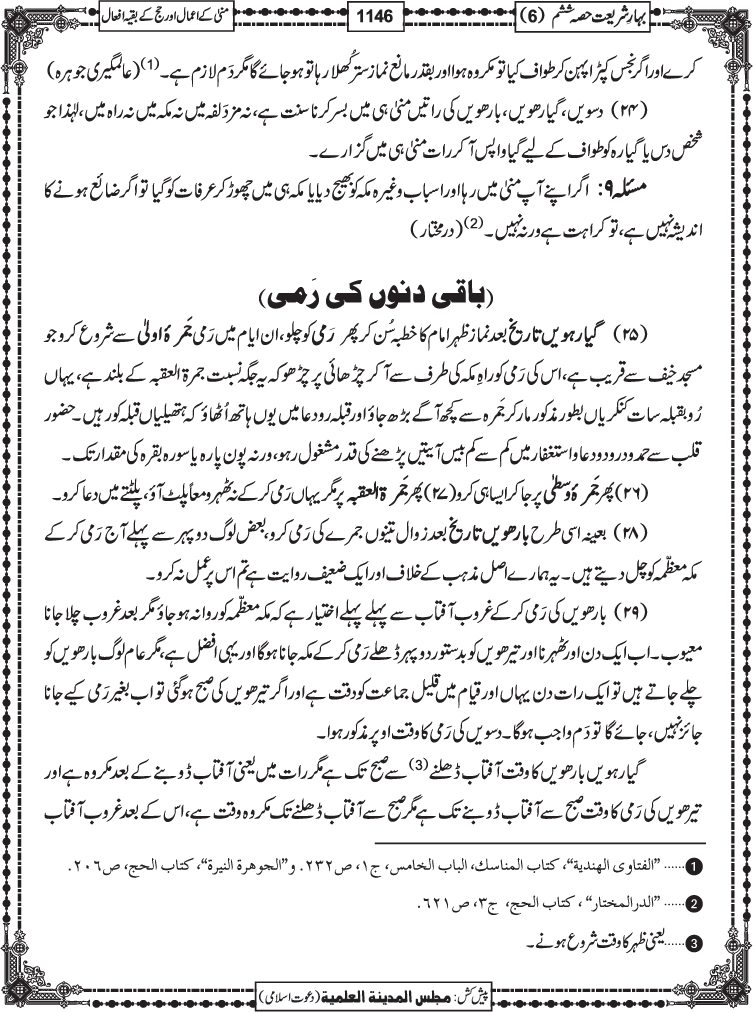 بہار شریعت حصہ ششم (6)
1146
منیٰ کے اعمال اور حج کے بقیہ افعال
کرے اور اگر نجس کپڑا پہن کر طواف کیا تو مکروہ ہوا اور بقدر مانع نماز ستر کُھلا رہا تو ہو جائے گا مگر دَم لازم ہے۔(1) (عالمگیری جوہرہ)
(۲۴) دسویں، گیارھویں، بارھویں کی راتیں منیٰ ہی میں بسر کرنا سنت ہے، نہ مزدلفہ میں نہ مکہ میں نہ راہ میں، لہٰذا جو
شخص دس یا گیارہ کو طواف کے لیے گیا واپس آکر رات منیٰ ہی میں گزارے۔
مسئلہ ۹: اگر اپنے آپ منیٰ میں رہا اور اسباب وغیرہ مکہ کو بھیج دیا یا مکہ ہی میں چھوڑ کر عرفات کو گیا تو اگر ضائع ہونے کا
اندیشہ نہیں ہے، تو کراہت ہے ورنہ نہیں۔(2) (درمختار)
(باقی دنوں کی رَمی)
(۲۵) گیارہویں تاریخ بعد نماز ظہر امام کا خطبہ سُن کر پھر رَمی کو چلو، ان ایام میں رَمی جَمرۂ اولیٰ سے شروع کرو جو
مسجد خیف سے قریب ہے، اس کی رَمی کو راہِ مکہ کی طرف سے آکر چڑھائی پر چڑھو کہ یہ جگہ نسبت جمرۃ العقبہ کے بلند ہے، یہاں
رُو بقبلہ سات کنکریاں بطور مذکور مار کر جَمرہ سے کچھ آگے بڑھ جاؤ اور قبلہ رو دعا میں یوں ہاتھ اُٹھاؤ کہ ہتھیلیاں قبلہ کو رہیں۔ حضور
قلب سے حمد و درود و دعا و استغفار میں کم سے کم بیس آیتیں پڑھنے کی قدر مشغول رہو، ورنہ پون پارہ یا سورہ بقرہ کی مقدار تک۔
(۲۶) پھر جَمرۂ وسطیٰ پر جاکر ایسا ہی کرو (۲۷) پھر جَمرۃ العقبہ پر مگر یہاں رَمی کر کے نہ ٹھہرو معاً پلٹ آؤ، پلٹتے میں دعا کرو۔
(۲۸) بعینہ اسی طرح بارھویں تاریخ بعد زوال تینوں جمرے کی رَمی کرو، بعض لوگ دوپہر سے پہلے آج رَمی کر کے
مکہ معظّمہ کو چل دیتے ہیں۔ یہ ہمارے اصل مذہب کے خلاف اور ایک ضعیف روایت ہے تم اس پر عمل نہ کرو۔
(۲۹) بارھویں کی رَمی کر کے غروب آفتاب سے پہلے پہلے اختیار ہے کہ مکہ معظّمہ کو روانہ ہو جاؤ مگر بعد غروب چلا جانا
معیوب۔ اب ایک دن اور ٹھہرنا اور تیرھویں کو بدستور دوپہر ڈھلے رَمی کر کے مکہ جانا ہوگا اور یہی افضل ہے، مگر عام لوگ بارھویں کو
چلے جاتے ہیں تو ایک رات دن یہاں اور قیام میں قلیل جماعت کو دقت ہے اور اگر تیرھویں کی صبح ہوگئی تو اب بغیر رَمی کیے جانا
جائز نہیں، جائے گا تو دَم واجب ہوگا۔ دسویں کی رَمی کا وقت اوپر مذکور ہوا۔
گیارہویں بارھویں کا وقت آفتاب ڈھلنے(3) سے صبح تک ہے مگر رات میں یعنی آفتاب ڈوبنے کے بعد مکروہ ہے اور
تیرھویں کی رَمی کا وقت صبح سے آفتاب ڈوبنے تک ہے مگر صبح سے آفتاب ڈھلنے تک مکروہ وقت ہے، اس کے بعد غروب آفتاب
1 ...... "الفتاوی الھندیة"، کتاب المناسك، الباب الخامس، ج۱، ص۲۳۲. و"الجوھرة النیرة"، کتاب الحج، ص۲۰۶.
2 ...... "الدرالمختار" ، کتاب الحج، ج۳، ص۶۲۱.
3 ...... یعنی ظہر کا وقت شروع ہونے۔
پیش کش: مجلس المدينة العلمية (دعوتِ اسلامی)